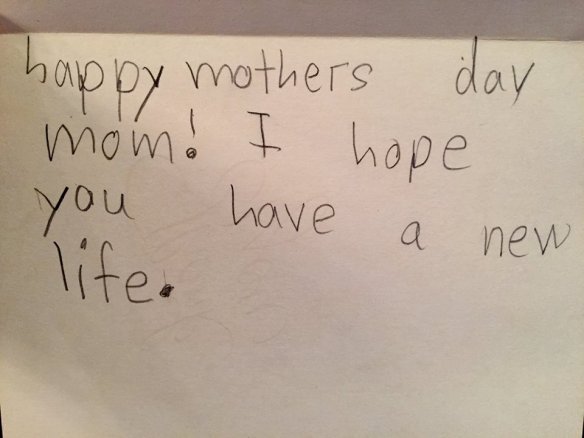 happy mothers day
mom! I hope
you have a new
life.